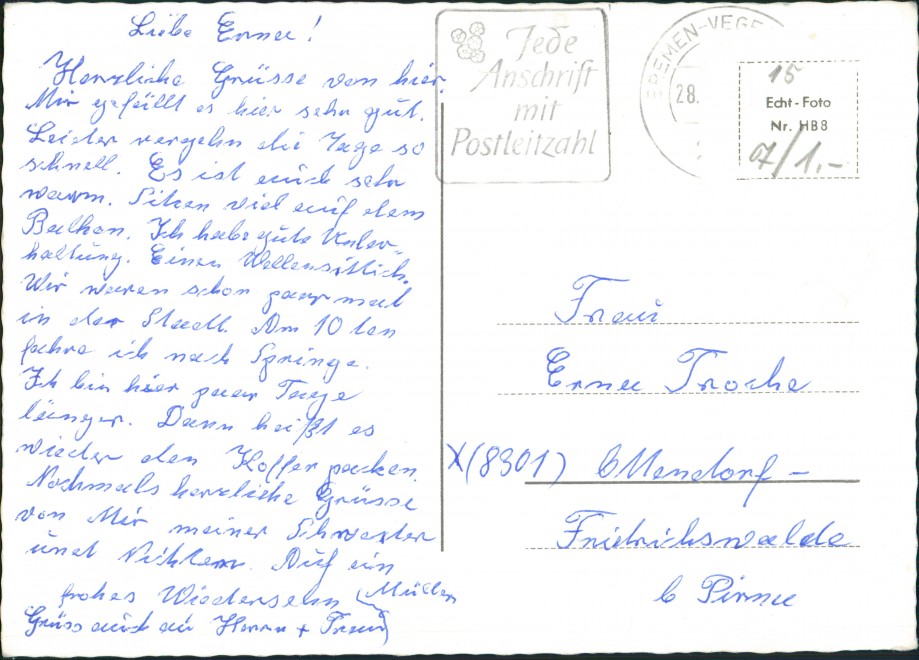 Liebe Erna!
Herzliche Grüsse von hier.
Mir gefällt es hier sehr gut.
Leider vergehn die Tage so
schnell. Es ist auch sehr
warm. Sitzen viel auf dem
Balkon. Ich habe gute Unter-
haltung. Einen Wellensittich.
Wir waren schon paar mal
in der Stadt. Am 10 ten
fahre ich nach Springe.
Ich bin hier paar Tage
länger. Dann heißt es
wieder den Koffer packen.
Nochmals herzliche Grüsse
von Mir meiner Schwester
und Nichten. Auf ein
frohes Wiedersehn
Grüss auch an Herrn + Frau
Müller
Jede
Anschrift
mit
Postleitzahl
BREMEN-VEGE
28.
15
Echt-Foto
Nr. HB8
07/1.-
Frau
Erna Troche
X(8301)
Friedrichswalde
b Pirna